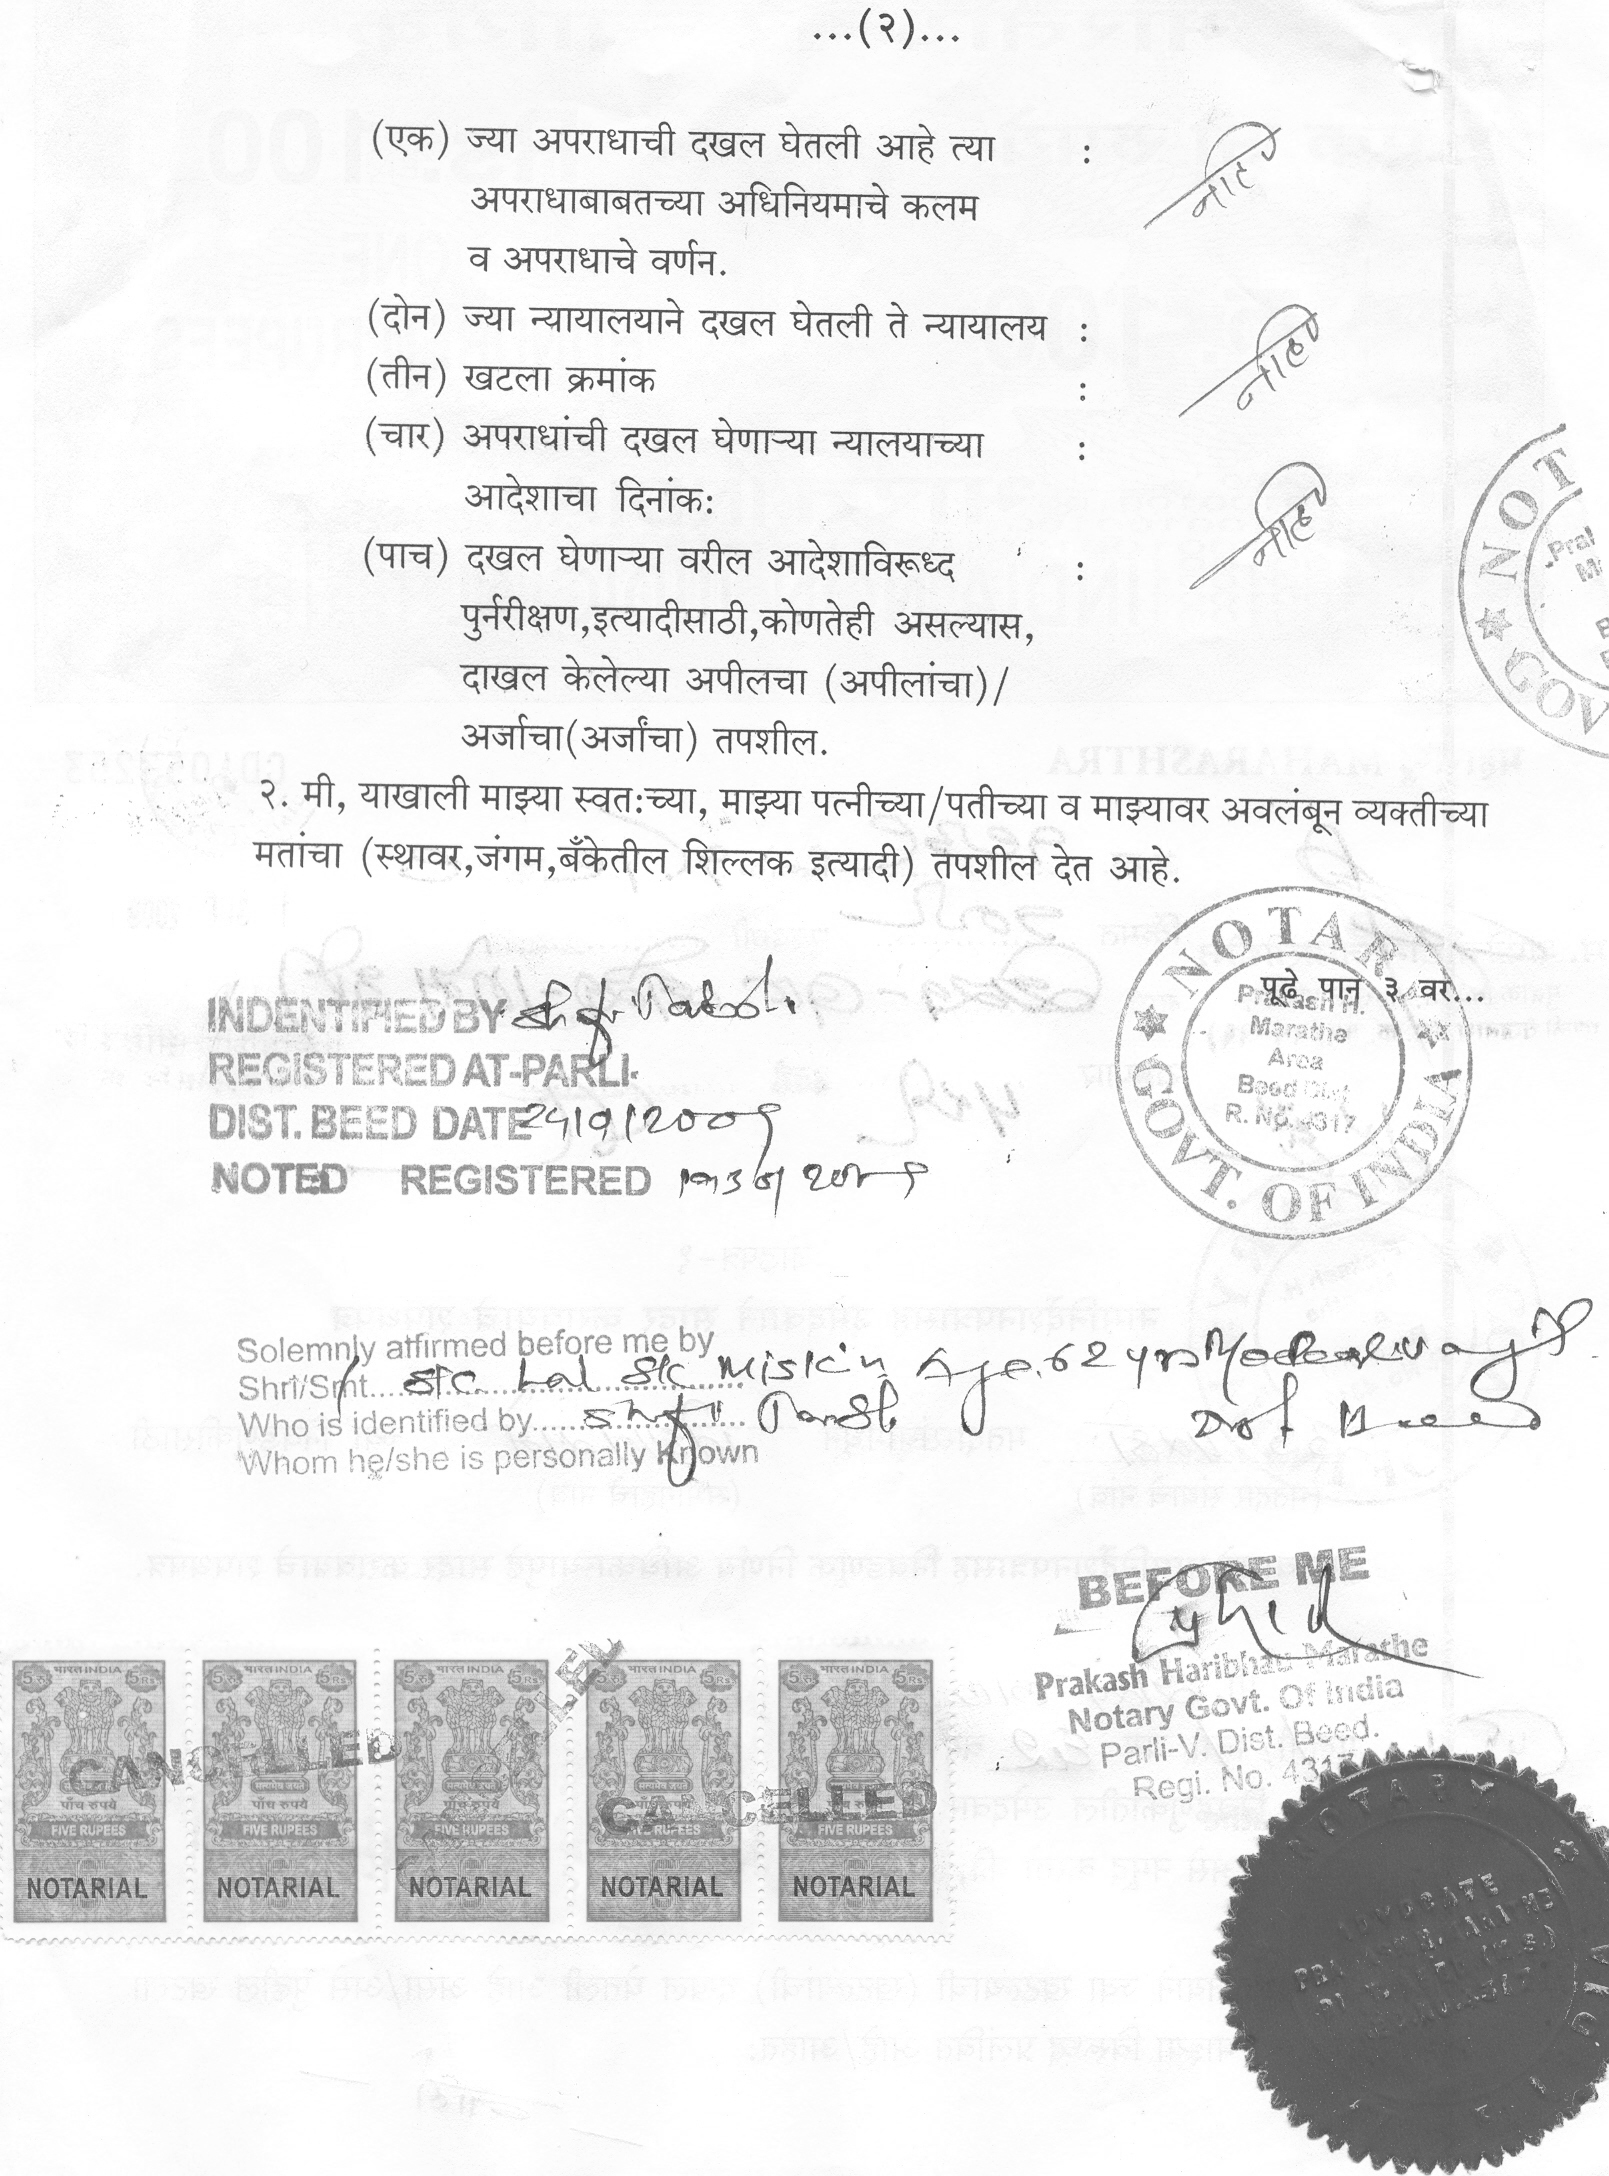 ...(२)...
(एक) ज्या अपराधाची दखल घेतली आहे त्या :
नाही
अपराधाबाबतच्या अधिनियमाचे कलम
व अपराधाचे वर्णन.
(दोन) ज्या न्यायालयाने दखल घेतली ते न्यायालय :
नाही
(तीन) खटला क्रमांक :
(चार) अपराधांची दखल घेणाऱ्या न्यालयाच्या :
आदेशाचा दिनांक:
नाही
(पाच) दखल घेणाऱ्या वरील आदेशाविरूध्द :
पुर्नरीक्षण,इत्यादीसाठी,कोणतेही असल्यास,
दाखल केलेल्या अपीलचा (अपीलांचा)/
अर्जाचा(अर्जांचा) तपशील.
२. मी, याखाली माझ्या स्वत:च्या, माझ्या पत्नीच्या/पतीच्या व माझ्यावर अवलंबून व्यक्तीच्या
मतांचा (स्थावर,जंगम,बँकेतील शिल्लक इत्यादी) तपशील देत आहे.
पूढे पान ३ वर...
NOTARY
GOVT. OF INDIA
Prakash H.
Marathe
Area
Beed Dist
R. No. 4317
INDENTIFIED BY
REGISTERED AT-PARLI-
DIST. BEED DATE 24/9/2009
NOTED REGISTERED
Solemnly affirmed before me by
Shri/Smt.... Lal Miskin Age. 62 yrs
Who is identified by....
Whom he/she is personally Known
BEFORE ME
Prakash Haribhau Marathe
Notary Govt. Of India
Parli-V. Dist. Beed.
Regi. No. 4317
भारत INDIA भारत INDIA भारत INDIA भारत INDIA भारत INDIA
CANCELLED CANCELLED CANCELLED
सत्यमेव जयते
पाँच रुपये पाँच रुपये पाँच रुपये पाँच रुपये पाँच रुपये
FIVE RUPEES FIVE RUPEES FIVE RUPEES FIVE RUPEES FIVE RUPEES
NOTARIAL NOTARIAL NOTARIAL NOTARIAL NOTARIAL
NOTARY
ADVOCATE